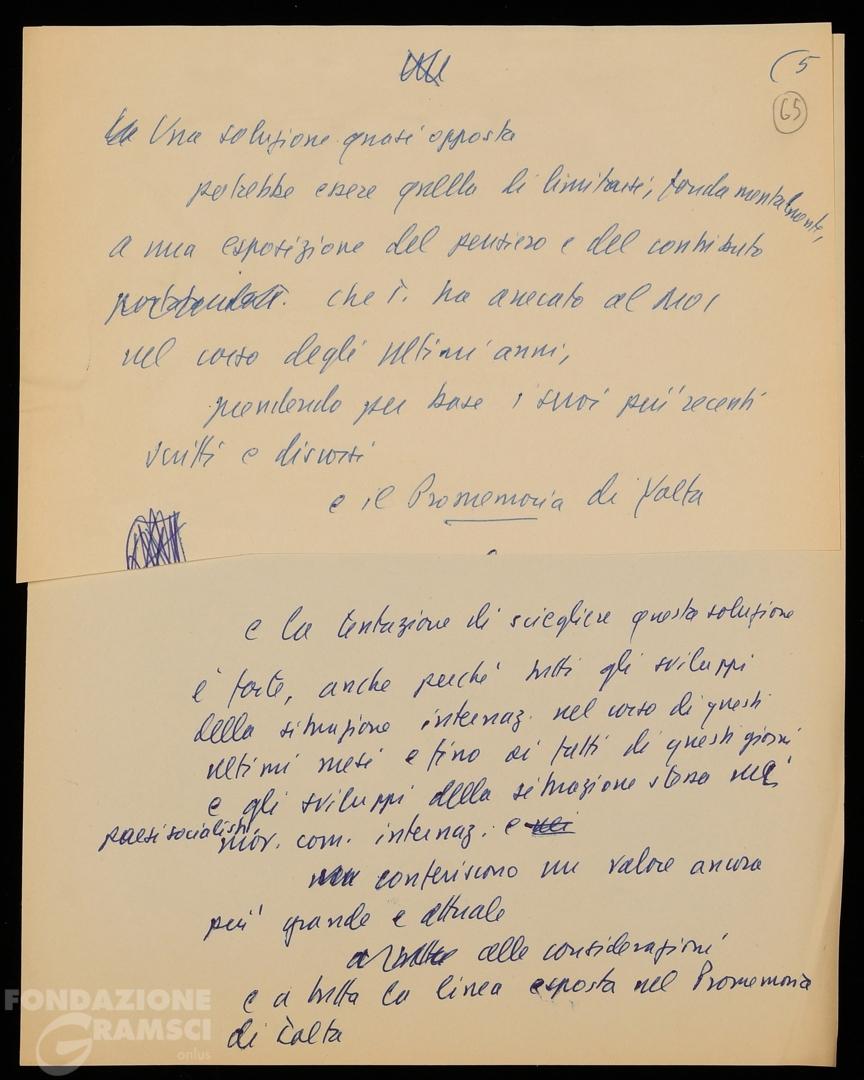 (5
65
Una soluzione quasi opposta
potrebbe essere quella di limitarsi, fondamentalmente,
a una esposizione del pensiero e del contributo
che T. ha arrecato al MOI
nel corso degli ultimi anni,
prendendo per base i suoi più recenti
scritti e discorsi
e il Promemoria di Yalta
e la tentazione di scegliere questa soluzione
è forte, anche perché tutti gli sviluppi
della situazione internaz. nel corso di questi
ultimi mesi e fino ai fatti di questi giorni
e gli sviluppi della situazione stessa nei
paesi socialisti
mov. com. internaz. e nei
conferiscono un valore ancora
più grande e attuale
alle considerazioni
e a tutta la linea esposta nel Promemoria
di Yalta
FONDAZIONE
GRAMSCI
onlus